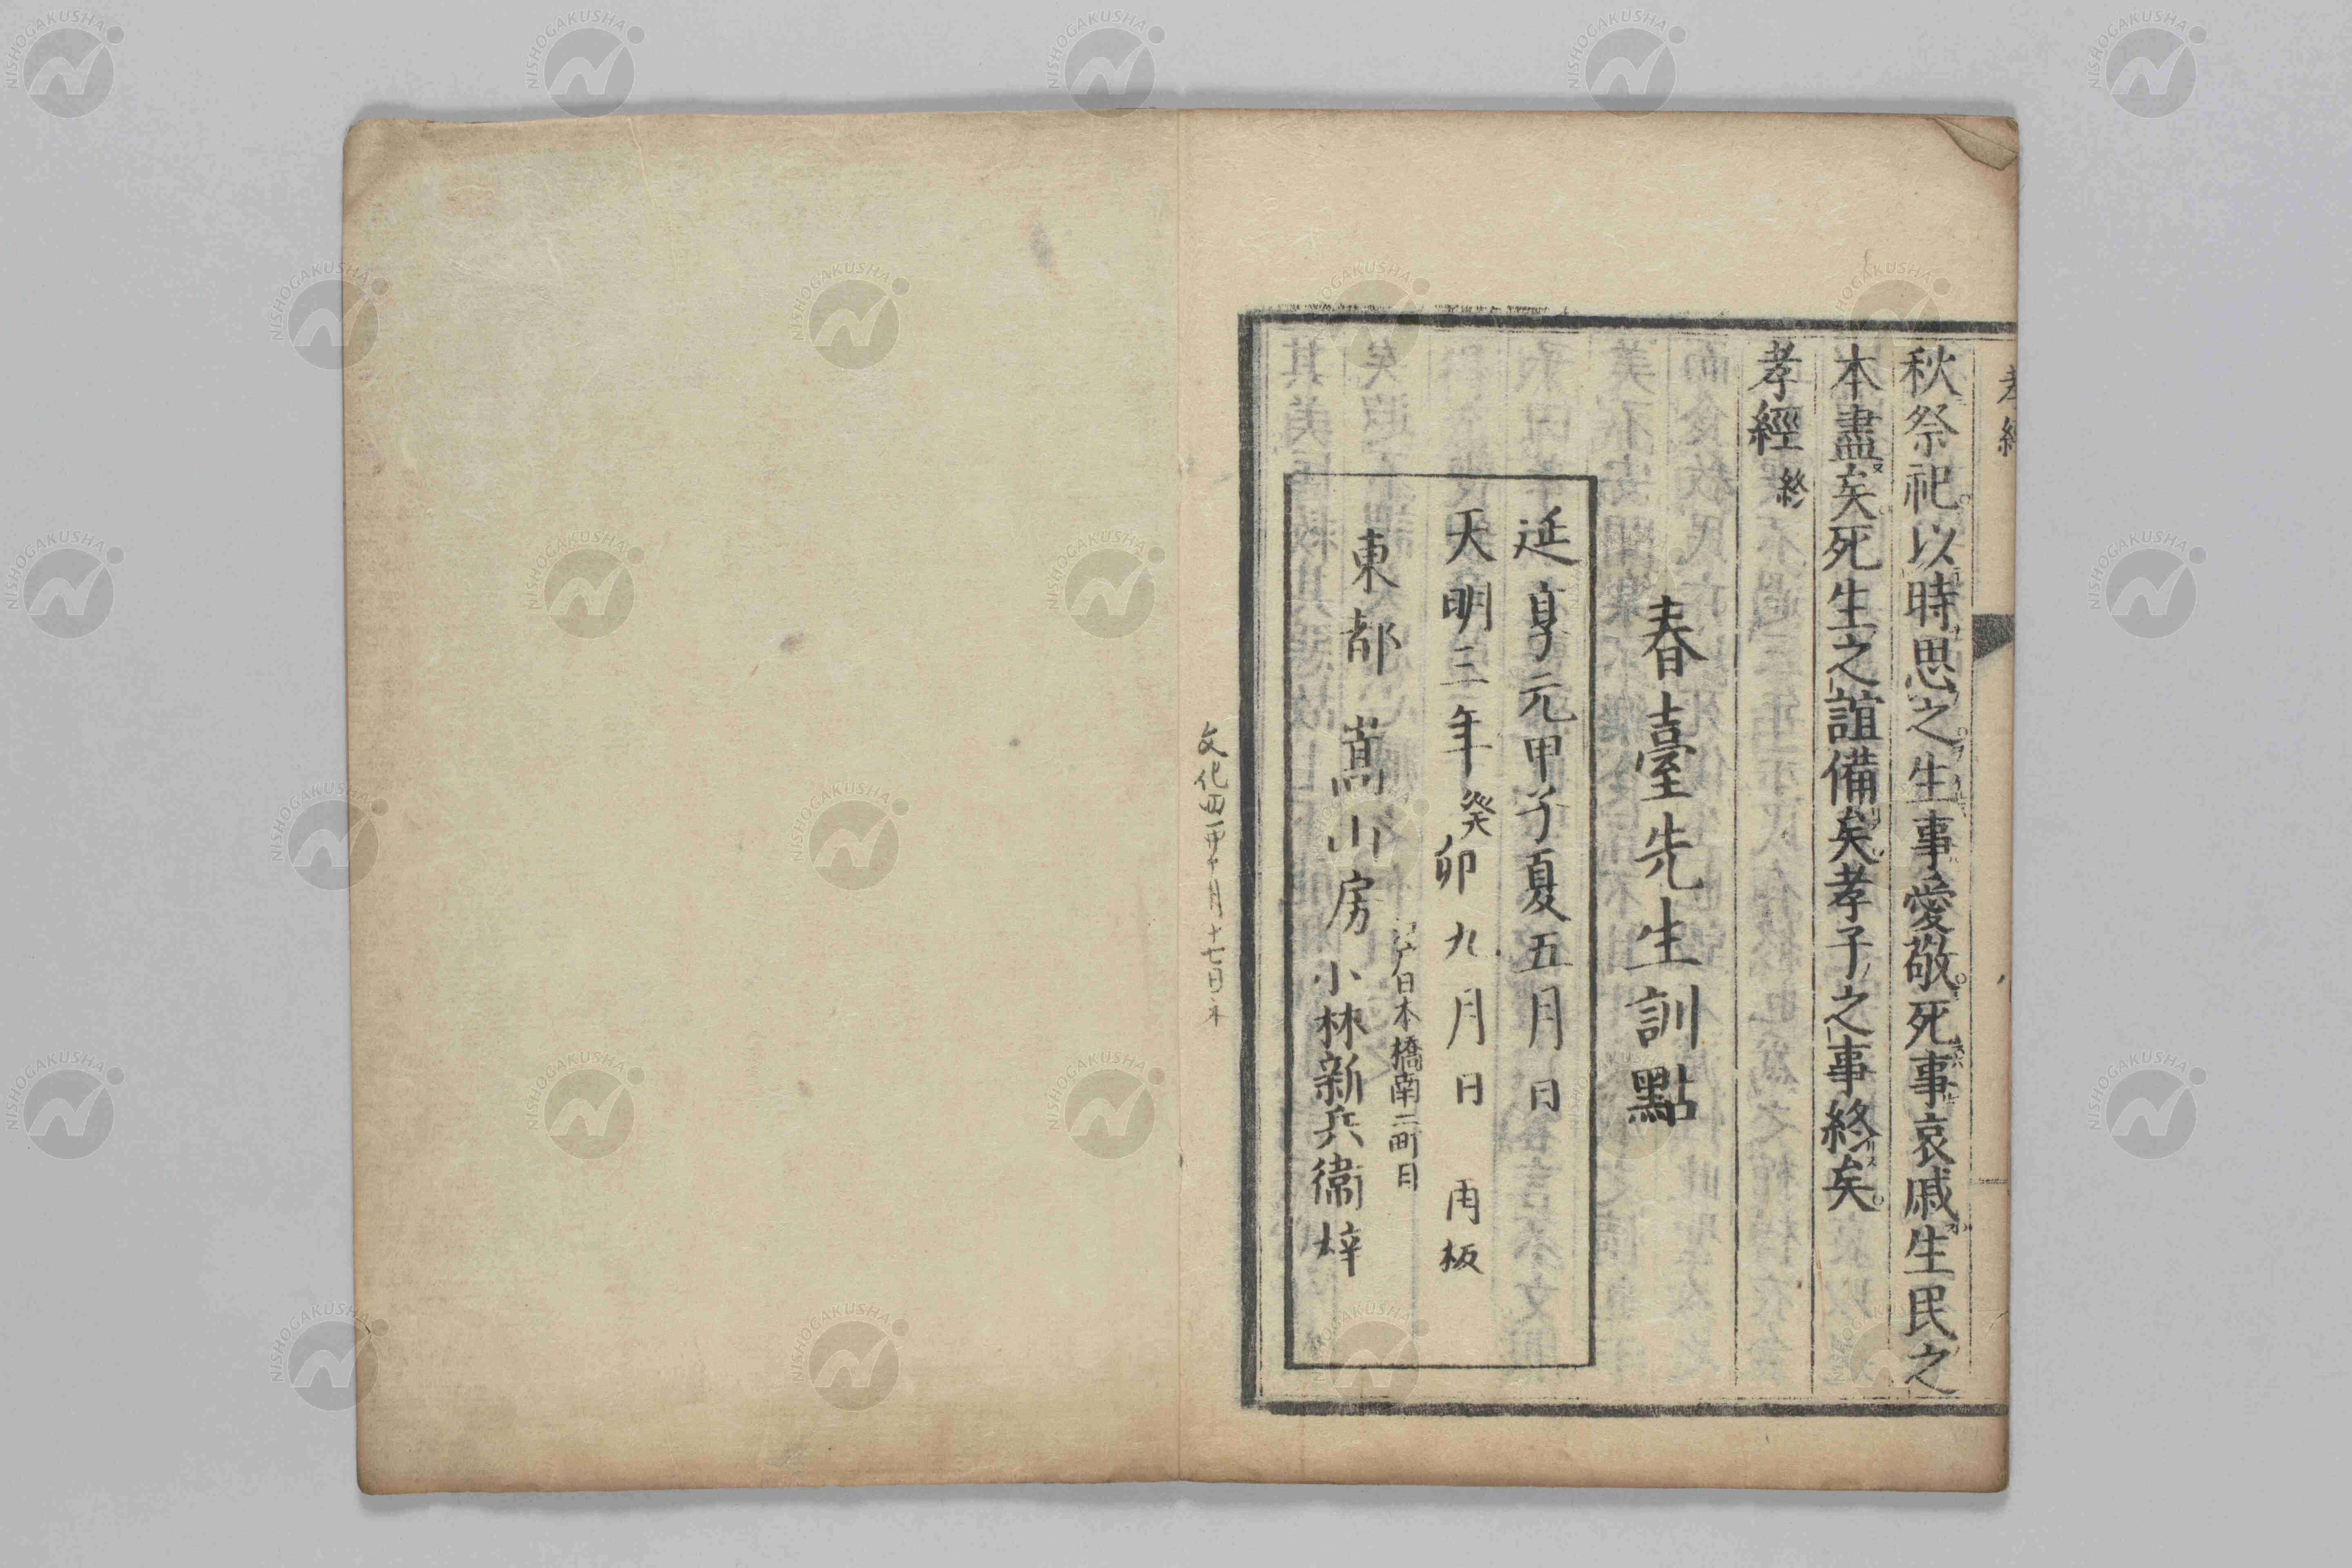 孝經
秋祭祀以時思之生事愛敬死事哀戚生民之
本盡矣死生之誼備矣孝子之事終矣
孝經終
春臺先生訓點
延享元甲子夏五月日
天明三年癸卯九月日 再板
江戸日本橋南二町目
東都 嵩山房 小林新兵衞梓
NISHOGAKUSHA